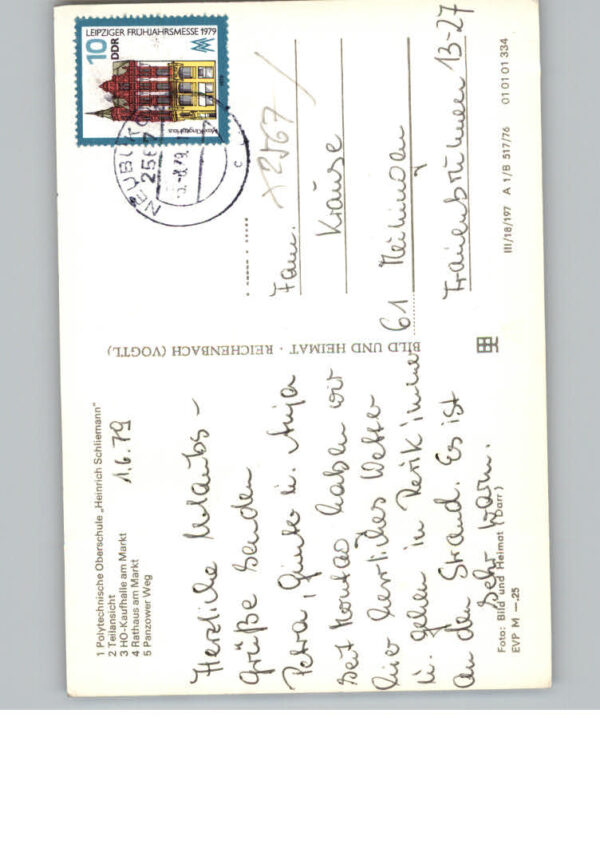 1 Polytechnische Oberschule „Heinrich Schliemann"
2 Teilansicht
3 HO-Kaufhalle am Markt
4 Rathaus am Markt
5 Panzower Weg
1.6.79
Herzliche Urlaubs-
grüße senden
Petra, Günter u. Anja
Seit Montag haben wir
hier herrliches Wetter
u. gehen in Rerik immer
an den Strand. Es ist
sehr warm.
Foto: Bild und Heimat (Darr)
EVP M —.25
BILD UND HEIMAT · REICHENBACH (VOGTL)
10
DDR
LEIPZIGER FRÜHJAHRSMESSE 1979
NEUBUKOW
256
79
c
x2567/
Fam.
Krause
61 Meiningen
Frauenbrunnen 13-27
III/18/197 A 1/B 517/76 01 01 01 334